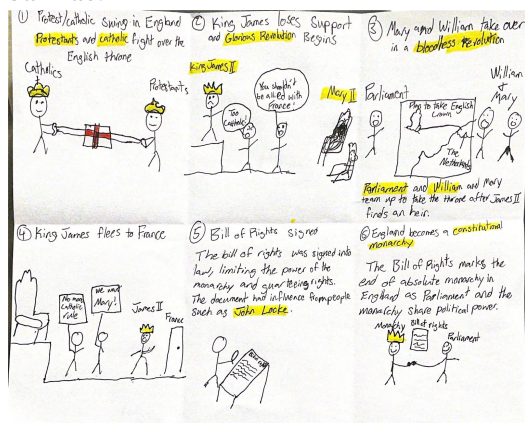 ① Protest/catholic swing in England
Protestants and catholic fight over the
English throne
Catholics
Protestants
② King James loses Support
and Glorious Revolution Begins
King James II
Too
Catholic!
You shouldn't
be allied with
France!
Mary II
③ Mary and William take over
in a bloodless revolution
William
&
Mary
Parliament
Plan to take English
Crown
The
Netherlands
Parliament and William and Mary
team up to take the throne after James II
finds an heir.
④ King James flees to France
No more
catholic
rule
We want
Mary!
James II
France
⑤ Bill of Rights signed
The bill of rights was signed into
law, limiting the power of the
monarchy and guarteeing rights.
The document had influence from people
such as John Locke.
Bill of rights
⑥ England becomes a constitutional
monarchy
The Bill of Rights marks the
end of absolute monarchy in
England as Parliament and the
monarchy share political power.
Monarchy
Bill of rights
Parliament